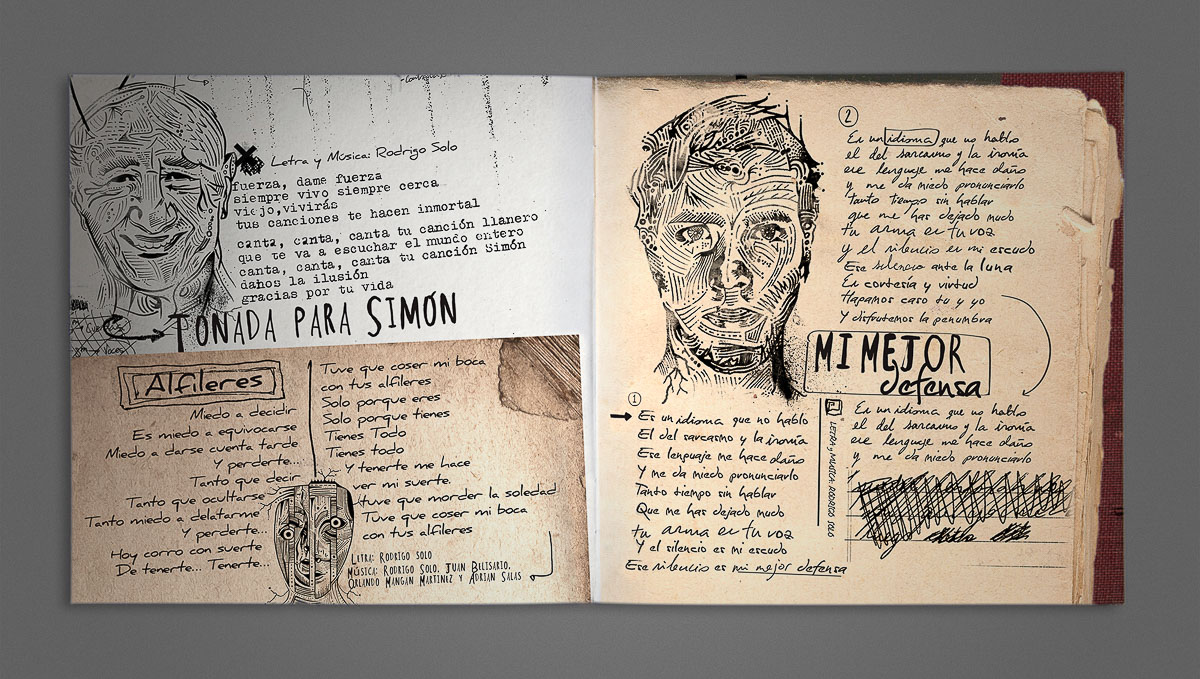 Letra y Música: Rodrigo Solo
fuerza, dame fuerza
siempre vivo siempre cerca
viejo, vivirás
tus canciones te hacen inmortal
canta, canta, canta tu canción llanero
que te va a escuchar el mundo entero
canta, canta, canta tu canción Simón
danos la ilusión
gracias por tu vida
TONADA PARA SIMÓN
Voces
Alfileres
Miedo a decidir
Es miedo a equivocarse
Miedo a darse cuenta tarde
Y perderte...
Tanto que decir
Tanto que ocultarse
Tanto miedo a delatarme
Y perderte...
Hoy corro con suerte
De tenerte... Tenerte...
Tuve que coser mi boca
con tus alfileres
Solo porque eres
Solo porque tienes
Tienes Todo
Tienes todo
Y tenerte me hace
ver mi suerte.
tuve que morder la soledad
Tuve que coser mi boca
con tus alfileres
LETRA: RODRIGO SOLO
MÚSICA: RODRIGO SOLO, JUAN BELISARIO,
ORLANDO MANGAN MARTINEZ Y ADRIAN SALAS
2
Es un idioma que no hablo
el del sarcasmo y la ironía
ese lenguaje me hace daño
y me da miedo pronunciarlo
tanto tiempo sin hablar
que me has dejado mudo
tu arma es tu voz
y el silencio es mi escudo
Ese silencio ante la luna
Es cortesía y virtud
Hagamos caso tu y yo
Y disfrutemos la penumbra
MI MEJOR
defensa
1
Es un idioma que no hablo
El del sarcasmo y la ironía
Ese lenguaje me hace daño
Y me da miedo pronunciarlo
Tanto tiempo sin hablar
Que me has dejado mudo
tu arma es tu voz
Y el silencio es mi escudo
Ese silencio es mi mejor defensa
LETRA Y MÚSICA: RODRIGO SOLO
Es un idioma que no hablo
el del sarcasmo y la ironía
ese lenguaje me hace daño
y me da miedo pronunciarlo